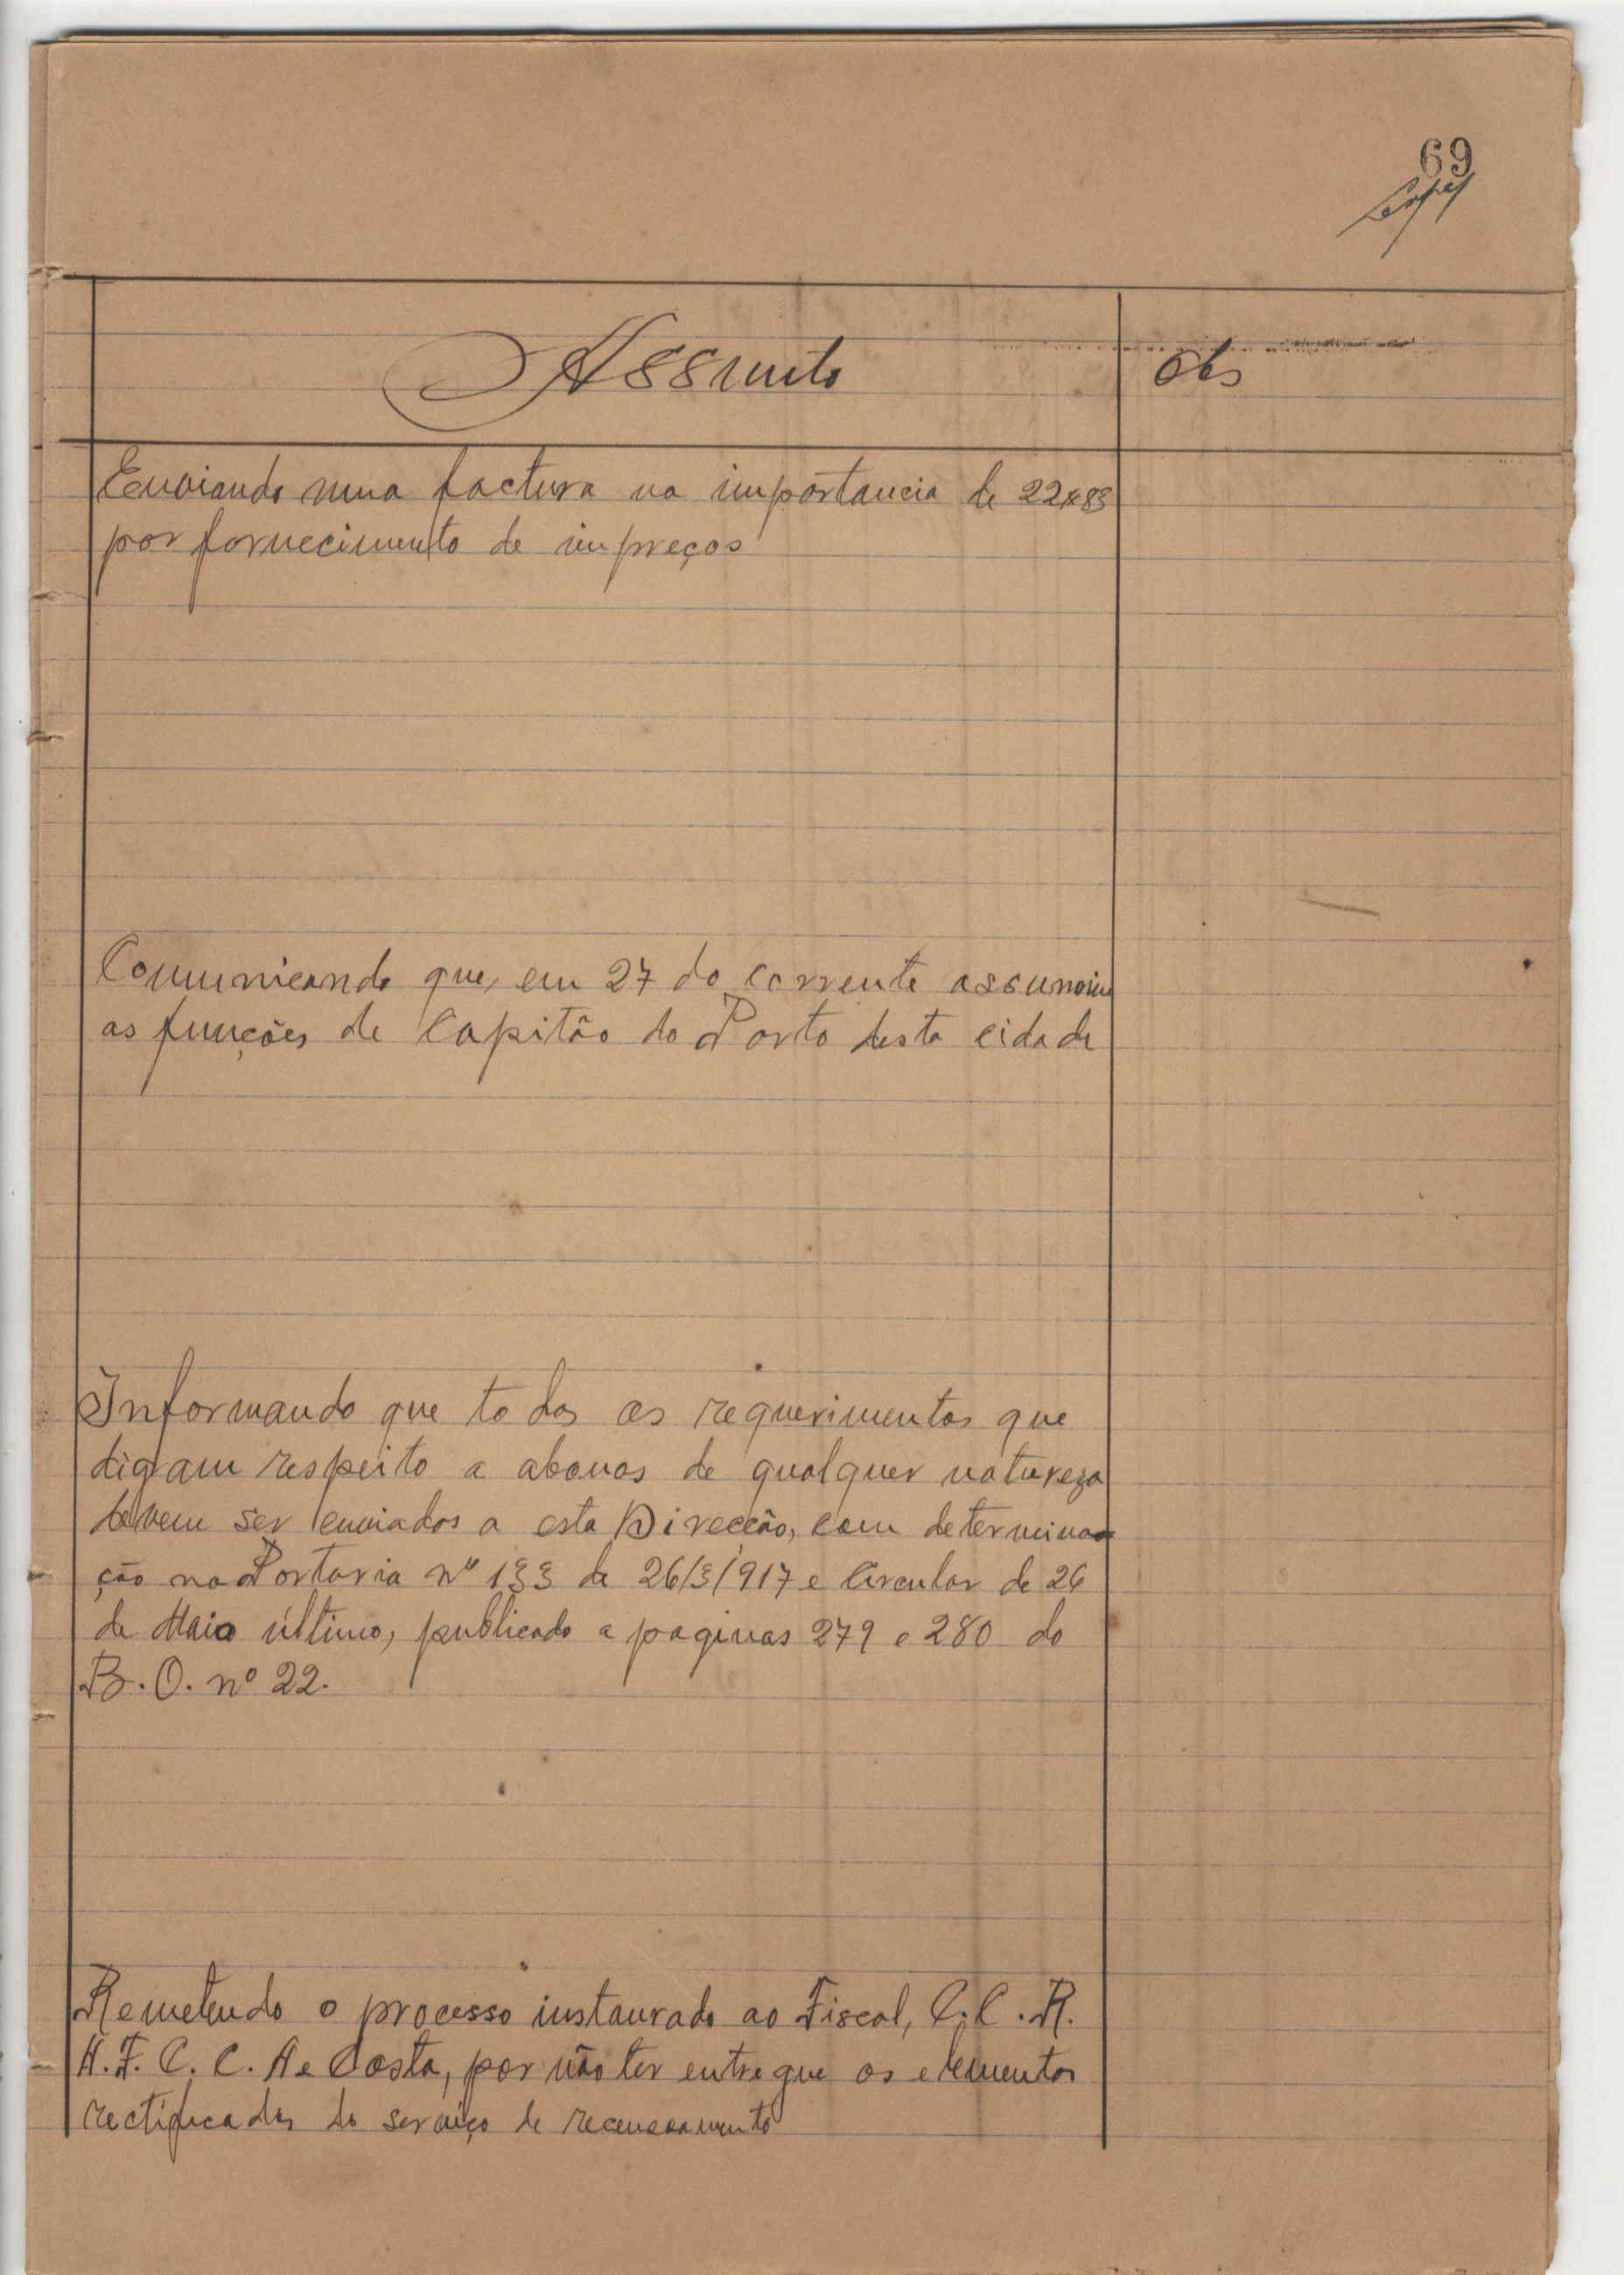 69
Assunto
Obs
Enviando uma factura na importancia de 22$83
por fornecimento de impreços
Comunicando que, em 27 do corrente assumiu
as funções de Capitão do Porto desta cidade
Informando que todos os requerimentos que
digam respeito a abonos de qualquer natureza
devem ser enviados a esta Direcção, com determina
ção na Portaria nº 133 de 26/3/917 e Circular de 26
de Maio último, publicado a paginas 279 e 280 do
B. O. nº 22.
Remetendo o processo instaurado ao Fiscal, C. C. R.
H. F. C. C. A e Costa, por não ter entregue os elementos
rectificados do serviço de recenseamento